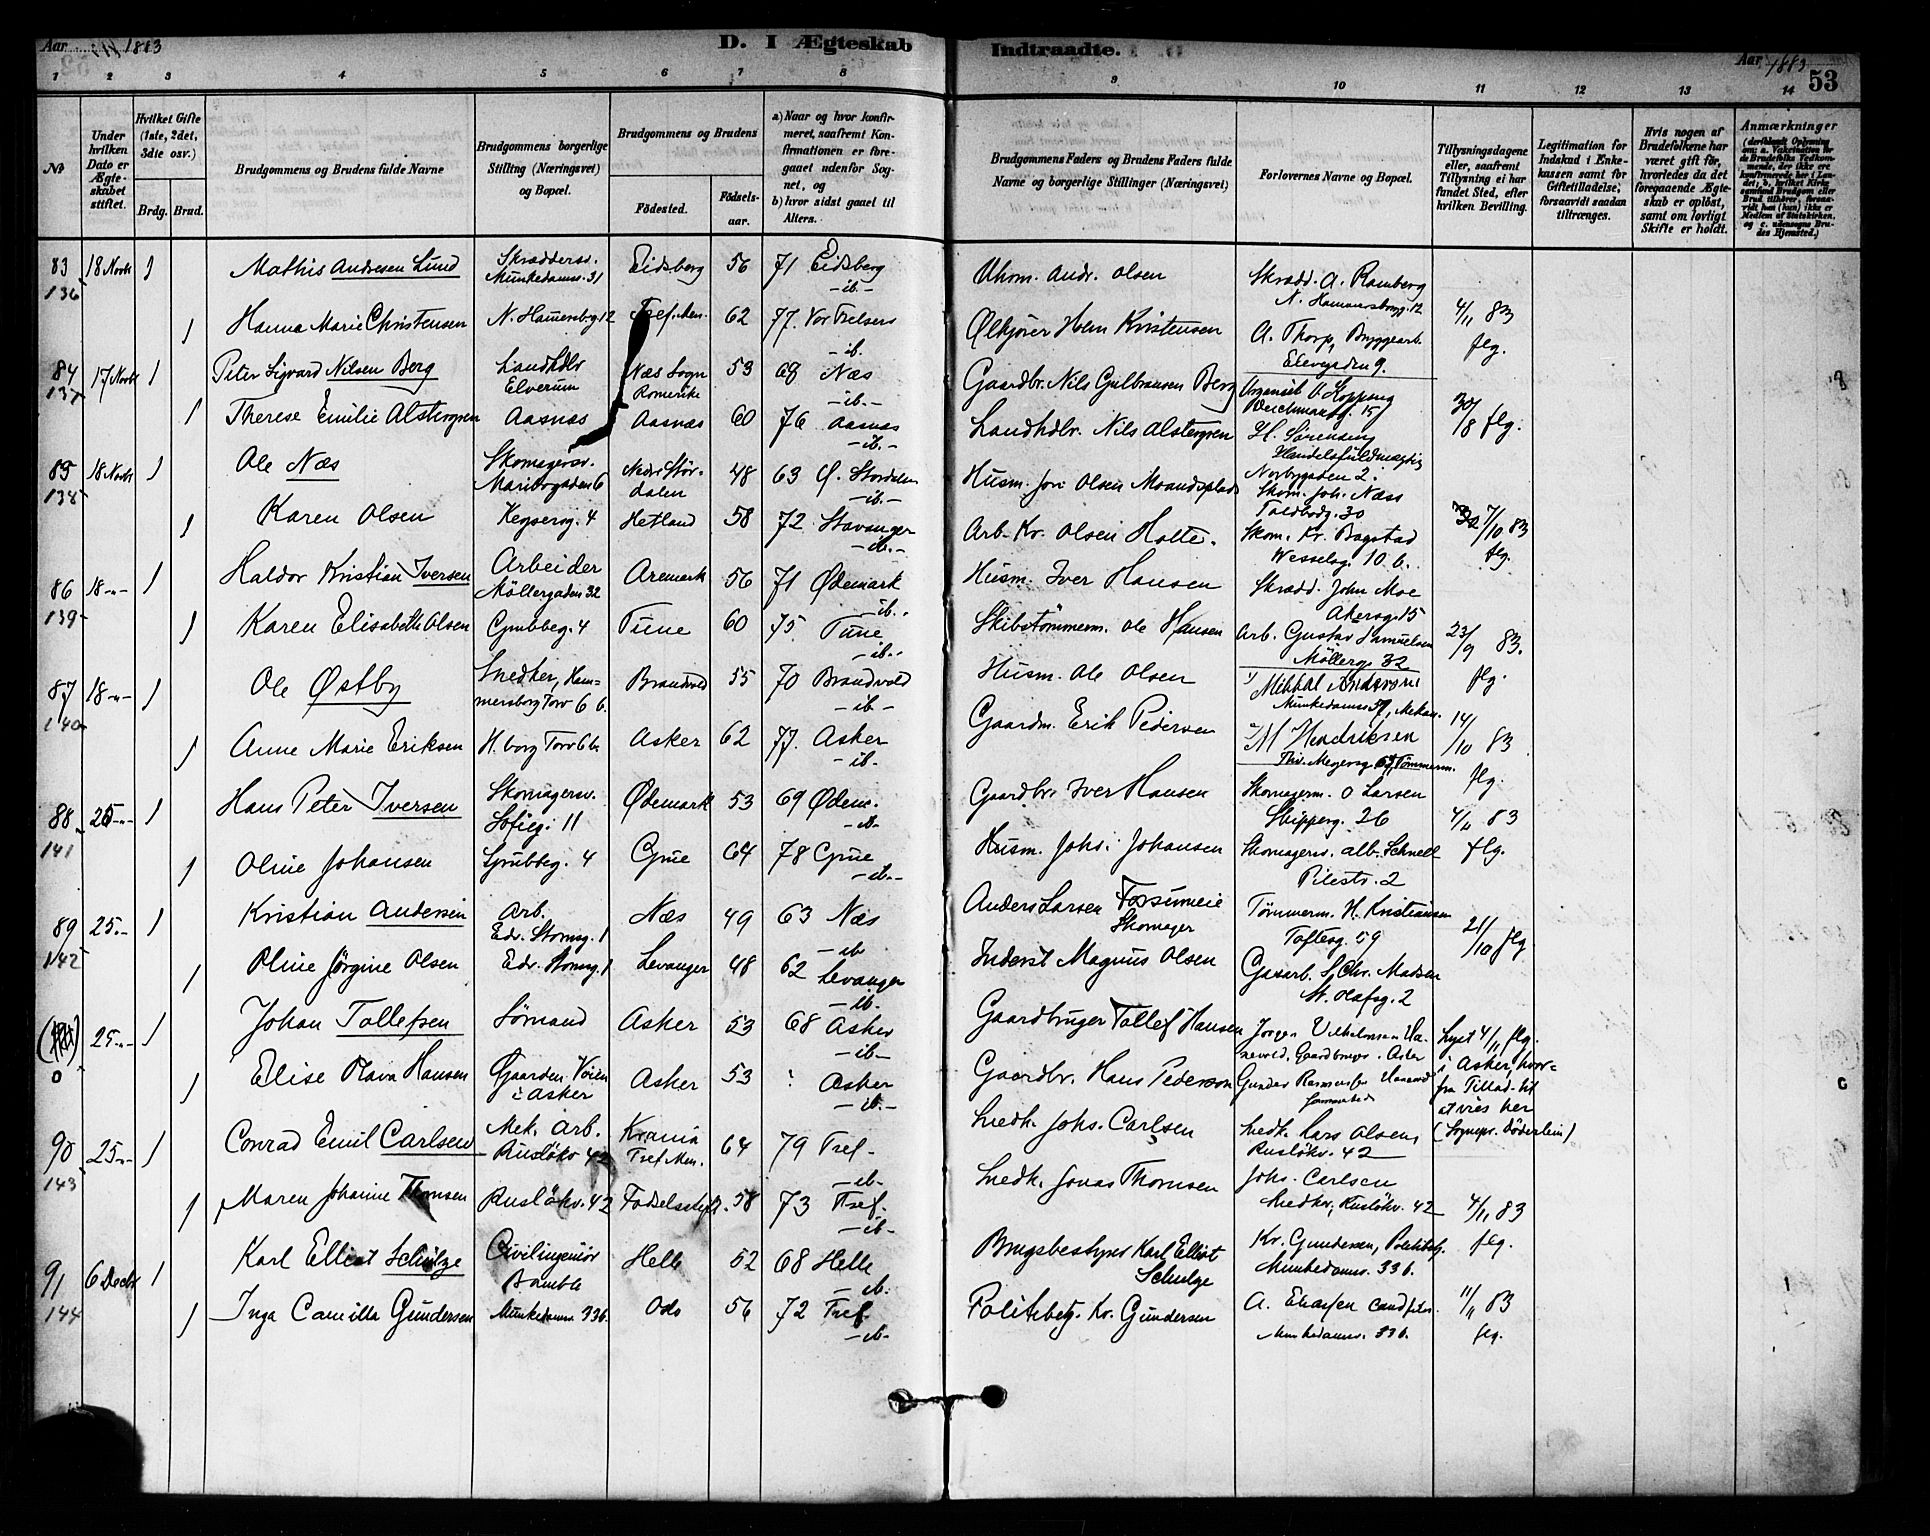 Aar 1883
D. I Ægteskab Indtraadte.
Aar 1883
53
1 2 3 4 5 6 7 8 9 10 11 12 13 14
No
Under hvilken Dato er Ægteskabet stiftet.
Hvilket Gifte (1ste, 2det, 3die osv.)
Brdg. Brud.
Brudgommens og Brudens fulde Navne
Brudgommens borgerlige Stilling (Næringsvei) og Bopæl.
Brudgommens og Brudens
Födested.
Födsels-aar.
a) Naar og hvor konfirmeret, saafremt Konfirmationen er foregaaet udenfor Sognet, og
b) hvor sidst gaaet til Alters.
Brudgommens Faders og Brudens Faders fulde Navne og borgerlige Stillinger (Næringsvei)
Forlovernes Navne og Bopæl.
Tillysningsdagene eller, saafremt Tillysning ei har fundet Sted, efter hvilken Bevilling.
Legitimation for Indskud i Enkekassen samt for Giftetilladelse, forsaavidt saadan tiltrænges.
Hvis nogen af Brudefolkene har været gift för, hvorledes da det foregaaende Ægteskab er oplöst, samt om lovligt Skifte er holdt.
Anmærkninger
83 136 18 Novb 1 Mathis Andresen Lund Skrædders. Munkedamsv. 31 Eidsberg 56 71 Eidsberg -ib.- Uhom. Andr. Olsen Skrædd. A. Ramberg N. Hammersborg 12
1 Hanna Marie Christensen N. Hamersbg. 12 Tref. Men. 62 77 Vor Frelsers -ib. Ølkjører Herm Kristensen A. Thorp, Bryggearb. Elvegaden 9. 4/11 83 flg.
84 137 17 Novb 1 Peter Sigvard Nilsen Berg Landhdlr Elverum Næs Sogn Romerike 53 68 Næs -ib.- Gaardbr. Nils Gulbransen Berg Organist O. Koppang Deichmansg. 15
1 Therese Emilie Alstergren Aasnæs Aasnæs 60 76 Aasnæs -ib- Landhdlr. Nils Alstergren H. Sørensen Handelsfuldmægtig Norbygaden 2. 30/8 flg.
85 138 18 Novb 1 Ole Næs Skomagersv. Maribogaden 6 Nedre Stør-dalen 48 63 Stordalen -ib.- Husm. Jon Olsen Moandsplads Skom. Joh. Næss Toldbodg. 30
1 Karen Olsen Keysersg. 4 Hetland 58 72 Stavanger -ib.- Arb. Kr. Olsen Holte. Skom. Kr. Bogstad Wesselsg. 10 b. 7/10 83 flg.
86 139 18 -"- 1 Haldor Kristian Iversen Arbeider Möllergaden 32 Aremark 56 71 Ødemark -ib.- Husm. Iver Hansen Skrædd. John Moe Akersg. 15
1 Karen Elisabeth Olsen Grubbeg. 4 Tune 60 75 Tune -ib.- Skibstömmerm. Ole Hansen Arb. Gustav Samuelsen Möllerg. 32 23/9 83. flg.
87 140 18 -"- 1 Ole Østby Snedker, Hammersborg Torv 6 b. Brandvold 55 70 Brandvold -ib- Husm. Ole Olsen Mikkal Andersen Munkedamsv. 59, Mekan.
1 Anne Marie Eriksen H.borg Torv 6 b. Asker 62 77 Asker -ib. Gaardm. Erik Pedersen M Hendriksen Thv. Meyersg. Tømmerm. 14/10 83 flg.
88 141 25 -"- 1 Hans Peter Iversen Skomagersv. Sofieg. 11 Ødemark 53 69 Ødem. -ib- Gaardbr. Iver Hansen Skomagerm. O Larsen Skipperg. 26 4/11 83
1 Oline Johansen Grubbeg. 4 Grue 64 78 Grue -ib.- Husm. Johs. Johansen Skomagersv. Alb. Schnell Pilestr. 2 flg.
89 142 25 -"- 1 Kristian Andersen Arb. Edv. Stormsg. 1 Næs 49 63 Næs -ib Anders Larsen Fossumeie Skomager Tømmerm. H. Kristiansen Toftesg. 59 21/10 flg.
1 Oline Jørgine Olsen Edv. Stormsg. 1 Levanger 48 62 Levanger -ib. Inderst Magnus Olsen Gasarb. S. Chr. Madsen St. Olafsg. 2
0 25 -"- 1 Johan Tollefsen Sömand Asker 53 68 Asker -ib- Gaardbruger Tollef Hansen Jørgen Vilhelmsen Gaardbruger. Asker Lyst 4/11 flg.
1 Elise Olava Hansen Gaarden Voien i Asker Asker 53 Asker -ib.- Gaardbr. Hans Pederson Gunder Rasmussen i Asker, hvor-fra Tillad. til at vies her (Sognepr. Döderlein)
90 143 25 -"- 1 Conrad Emil Carlsen Mek. Arb. Rusløkv 42 Krania Tref. Men. 64 79 Tref. -ib- Snedk. Johs. Carlsen Snedk. Lars Olsen, Rusløkv. 42
1 Maren Johanne Thomsen Rusløkv. 42 Fødselsstift. 58 73 Tref. -ib- Snedk. Jonas Thomsen Johs. Carlsen Snedker, Rusløkv. 42 4/11 83 flg.
91 144 6 Decbr 1 Karl Elliot Schulze Civilingeniør Bamble Helle 52 68 Helle -ib. Brugsbestyrer Karl Elliot Schulze Kr. Gundersen, Politibetj. Munkedamsv. 33 b.
1 Inga Camilla Gundersen Munkedamsv. 33 b. Odo 56 72 Tref. -ib- Politibetj. Kr. Gundersen A. Eliassen cand. filos. Munkedamsv. 33 b. 11/11 83 flg.